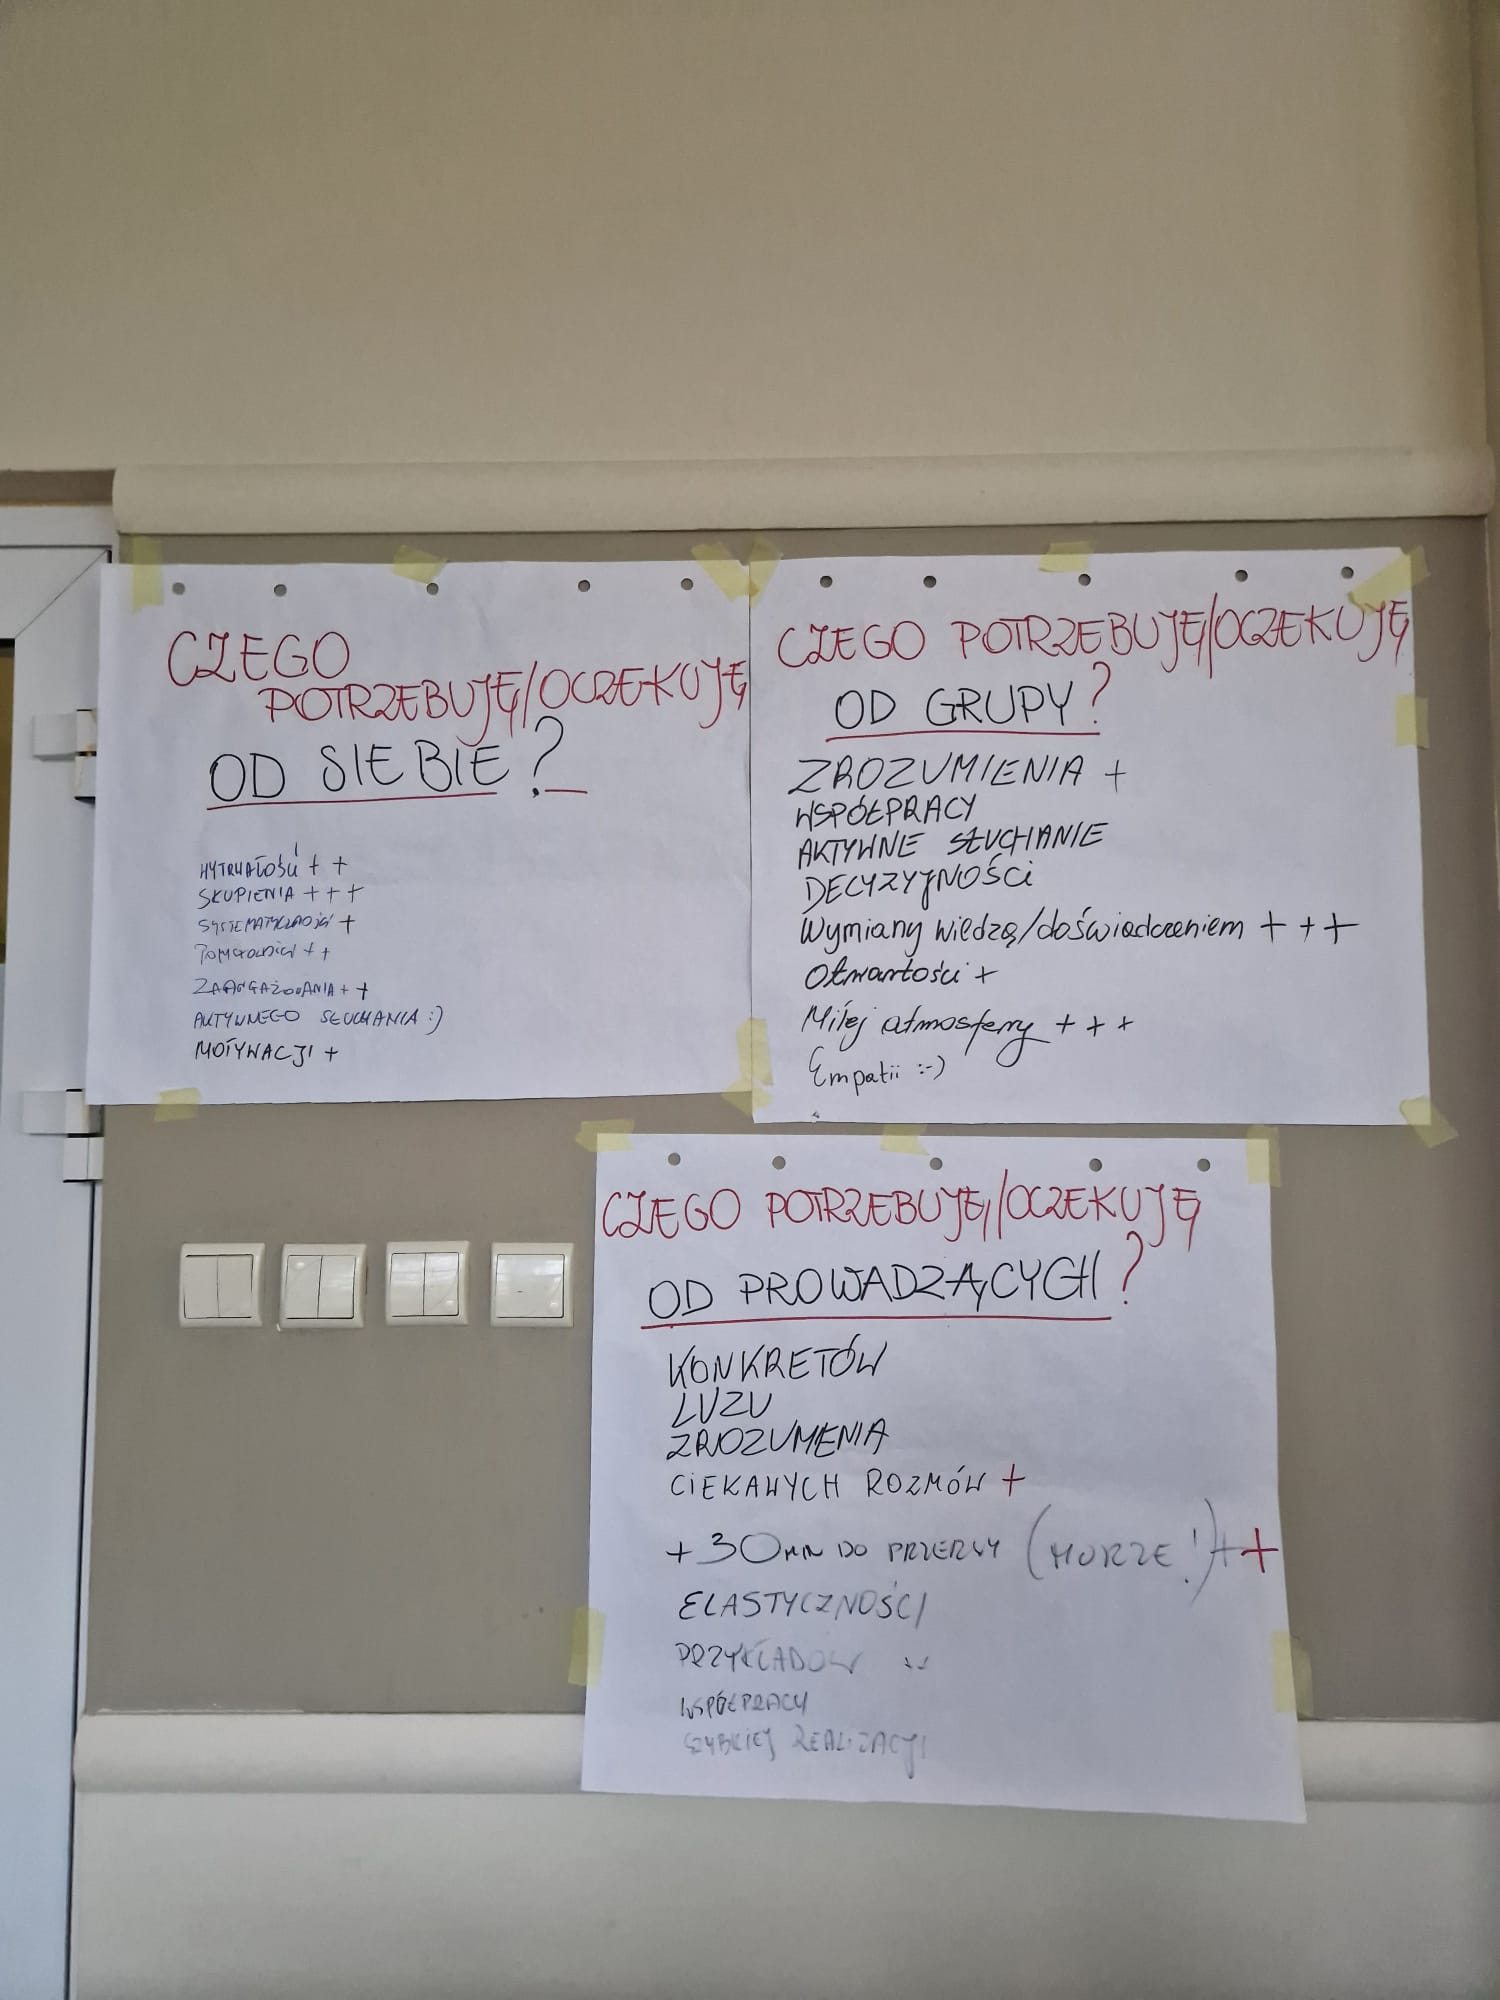 CZEGO
POTRZEBUJĘ/OCZEKUJĘ
OD SIEBIE?
WYTRWAŁOŚCI + +
SKUPIENIA + + +
SYSTEMATYCZNOŚCI +
+ +
ZAANGAŻOWANIA + +
AKTYWNEGO SŁUCHANIA :)
MOTYWACJI +
CZEGO POTRZEBUJĘ/OCZEKUJĘ
OD GRUPY?
ZROZUMIENIA +
WSPÓŁPRACY
AKTYWNE SŁUCHANIE
DECYZYJNOŚCI
Wymiany wiedzą/doświadczeniem + + +
Otwartości +
Miłej atmosfery + + +
Empatii :-)
CZEGO POTRZEBUJĘ/OCZEKUJĘ
OD PROWADZĄCYCH?
KONKRETÓW
LUZU
ZROZUMIENIA
CIEKAWYCH ROZMÓW +
+ 30 MIN DO PRZERWY (MORZE!) + +
ELASTYCZNOŚCI
PRZYKŁADÓW
WSPÓŁPRACY
SZYBKIEJ REALIZACJI